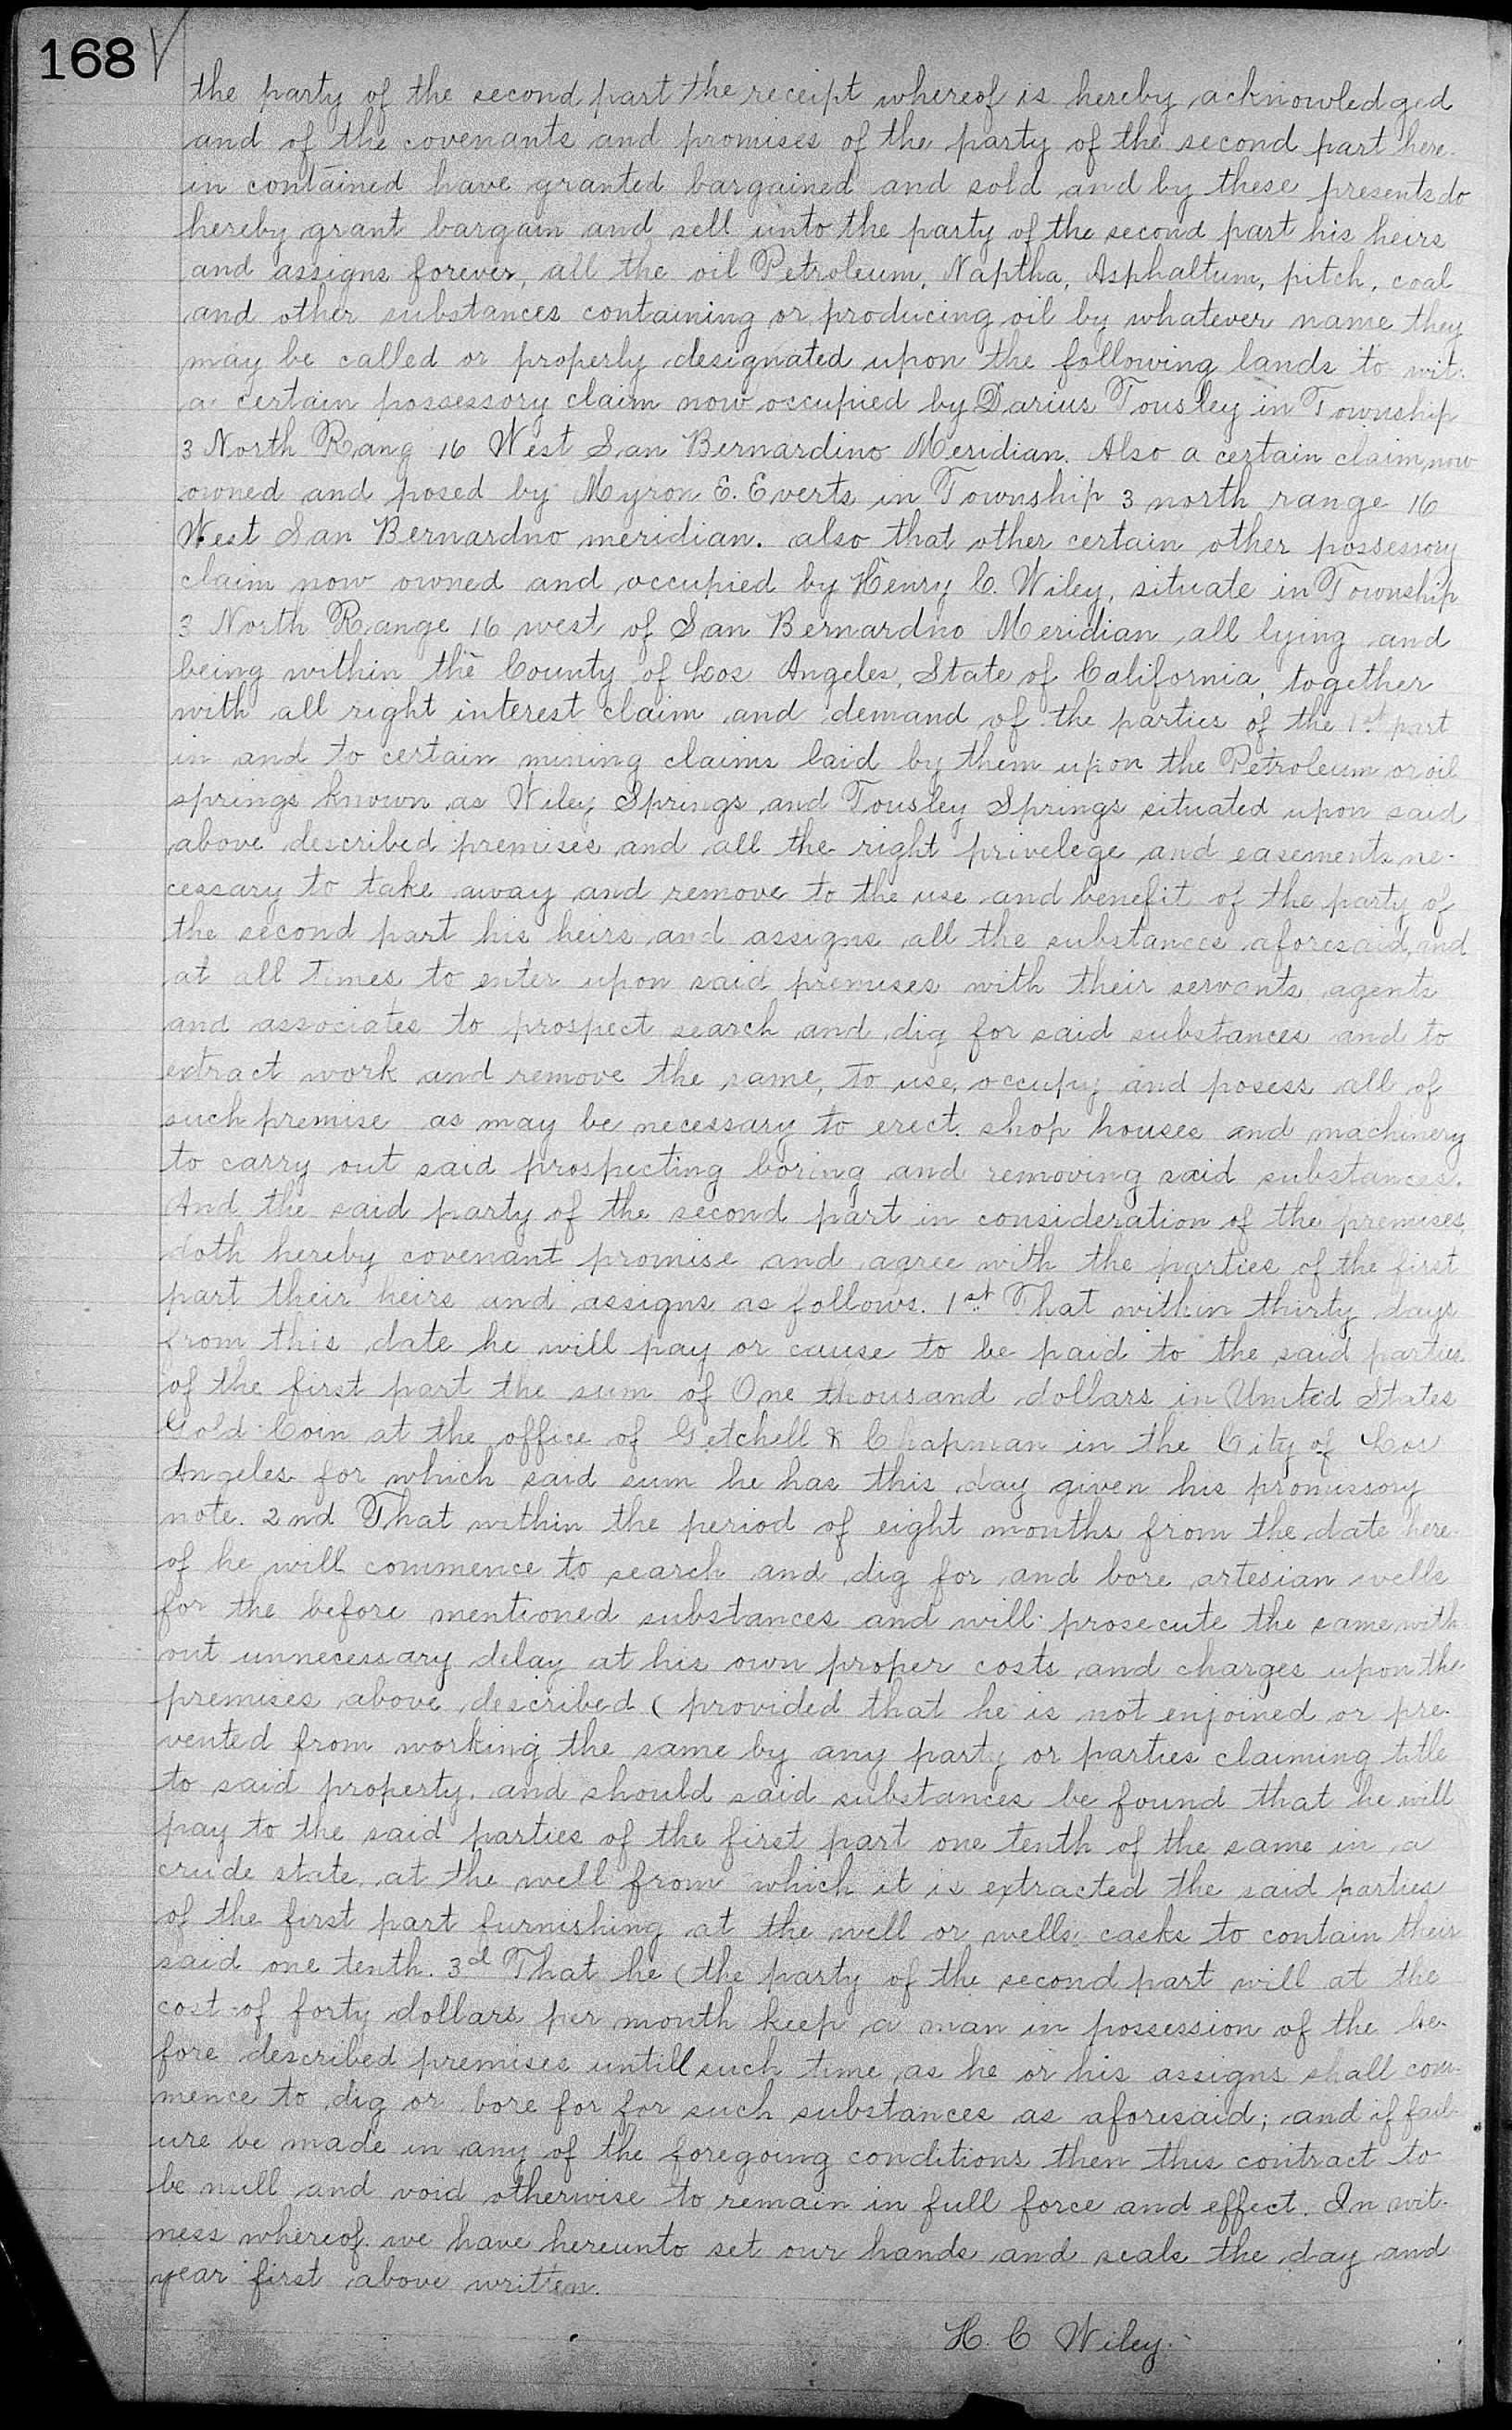 168 √
the party of the second part the receipt whereof is hereby acknowledged
and of the covenants and promises of the party of the second part here-
in contained have granted bargained and sold and by these presents do
hereby grant bargain and sell unto the party of the second part his heirs
and assigns forever, all the oil Petroleum, Naptha, Asphaltum, pitch, coal
and other substances containing or producing oil by whatever name they
may be called or properly designated upon the following lands to wit:
a certain possessory claim now occupied by Darius Tousley in Township
3 North Rang 16 West San Bernardino Meridian. Also a certain claim now
owned and posed by Myron E. Everts in Township 3 north range 16
West San Bernardno meridian. also that other certain other possessory
claim now owned and occupied by Henry C. Wiley, situate in Township
3 North Range 16 west of San Bernardno Meridian all lying and
being within the County of Los Angeles, State of California, together
with all right interest claim and demand of the parties of the 1st part
in and to certain mining claims laid by them upon the Petroleum or oil
springs known as Wiley Springs and Tousley Springs situated upon said
above described premises and all the right privelege and easements ne-
cessary to take away and remove to the use and benefit of the party of
the second part his heirs and assigns all the substances aforesaid, and
at all times to enter upon said premises with their servants agents
and associates to prospect search and dig for said substances and to
extract work and remove the same, to use, occupy and posess all of
such premise as may be necessary to erect shop houses and machinery
to carry out said prospecting boring and removing said substances.
And the said party of the second part in consideration of the premises,
doth hereby covenant promise and agree with the parties of the first
part their heirs and assigns as follows. 1st That within thirty days
from this date he will pay or cause to be paid to the said parties
of the first part the sum of One thousand dollars in United States
Gold Coin at the office of Getchell & Chapman in the City of Los
Angeles for which said sum he has this day given his promissory
note. 2nd That within the period of eight months from the date here-
of he will commence to search and dig for and bore artesian wells
for the before mentioned substances and will prosecute the same with
out unnecessary delay at his own proper costs and charges upon the
premises above described (provided that he is not enjoined or pre-
vented from working the same by any party or parties claiming title
to said property. and should said substances be found that he will
pay to the said parties of the first part one tenth of the same in a
crude state at the well from which it is extracted the said parties
of the first part furnishing at the well or wells casks to contain their
said one tenth. 3d That he (the party of the second part will at the
cost of forty dollars per month keep a man in possession of the be-
fore described premises untill such time as he or his assigns shall com-
mence to dig or bore for for such substances as aforesaid; and if fail-
ure be made in any of the foregoing conditions then this contract to
be null and void otherwise to remain in full force and effect. In wit-
ness whereof we have hereunto set our hands and seals the day and
year first above written.
H. C Wiley.